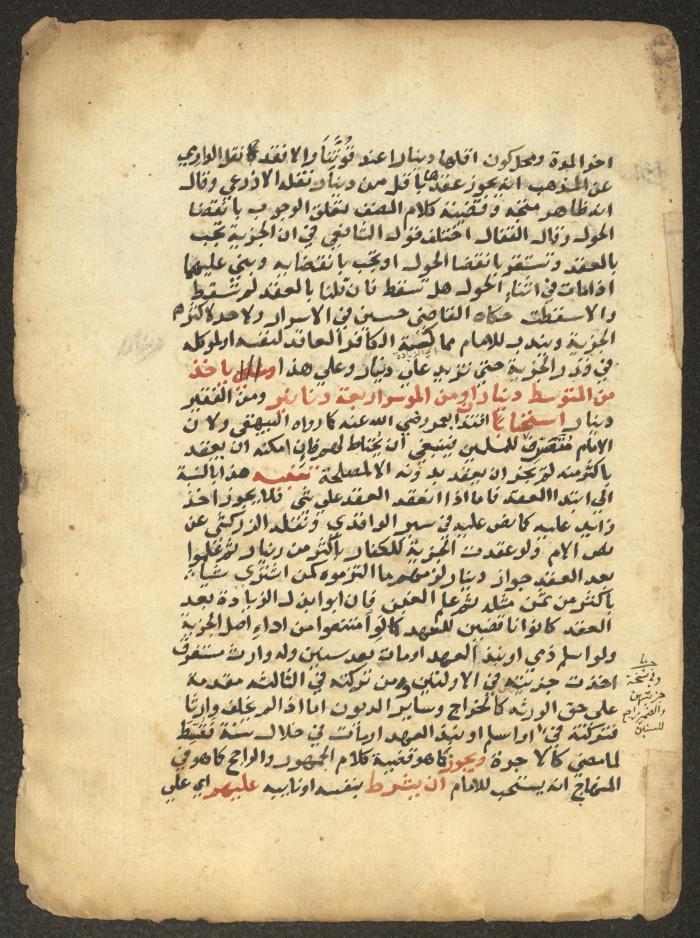 اخر المدة ومحل كون اقلها دينارا عند قوتنا والا فقد نقل الوازي
عن المذهب انه يجوز عقدها باقل من دينار نقله الاذرعي وقال
انه ظاهر متجه وقضية كلام المصنف تعلق الوجوب بانقضا
الحول وقال القفال اختلف قول الشافعي في ان الجزية تجب
بالعقد وتستقر بانقضا الحول او تجب بانقضايه وبني عليهما
اذا مات في اثناء الحول هل تسقط فان قلنا بالعقد لم تسقط
والا سقطت حكاه القاضي حسين في الاسرار ولا حد لاكثر
الجزية ويندب للامام مماكسة الكافر العاقد لنفسه او لموكله
في قدر الجزية حتي تزيد علي دينار وعلي هذا ياخذ
من المتوسط دينارا ومن الموسر اربعة دنانير ومن الفقير
دينار استحبابا اقتدا بعمر رضي الله عنه كما رواه البيهقي ولان
الامام متصرف للمسلمين فينبغي ان يحتاط لهم فان امكنه ان يعقد
باكثر منه لم يجز ان يعقد بدونه الا لمصلحة تنبيه هذا بالنسبة
الي ابتدا العقد فاما اذا انعقد العقد علي شي فلا يجوز اخذ
زايد عليه كما نص عليه في سير الواقدي ونقله الزركشي عن
نص الام ولو عقدت الجزية للكفار باكثر من دينار ثم علموا
بعد العقد جواز دينار لزمهم ما التزموه كمن اشتري شيا
باكثر من ثمن مثله ثم علم الغبن فان ابوا بذل الزيادة بعد
العقد كانوا ناقضين للعهد كما لو امتنعوا من اداء اصل الجزية
ولو اسلم ذمي او نبذ العهد او مات بعد سنين وله وارث مستغرق
اخذت جزيته في الاولتين ومن تركته في الثالثة مقدمة
علي حق الورثة كالخراج وساير الديون اما اذا لم يخلف وارثا
فتركته فيء او اسلم او نبذ العهد او مات في خلال سنة فقسط
لما مضي كالاجرة ويجوز كما هو قضية كلام الجمهور والراجح كما هو في
المنهاج انه يستحب للامام ان يشرط بنفسه او نايبه عليهم اي علي
وفي نسخة
جزيتهن
والضمير راجع
للسنين